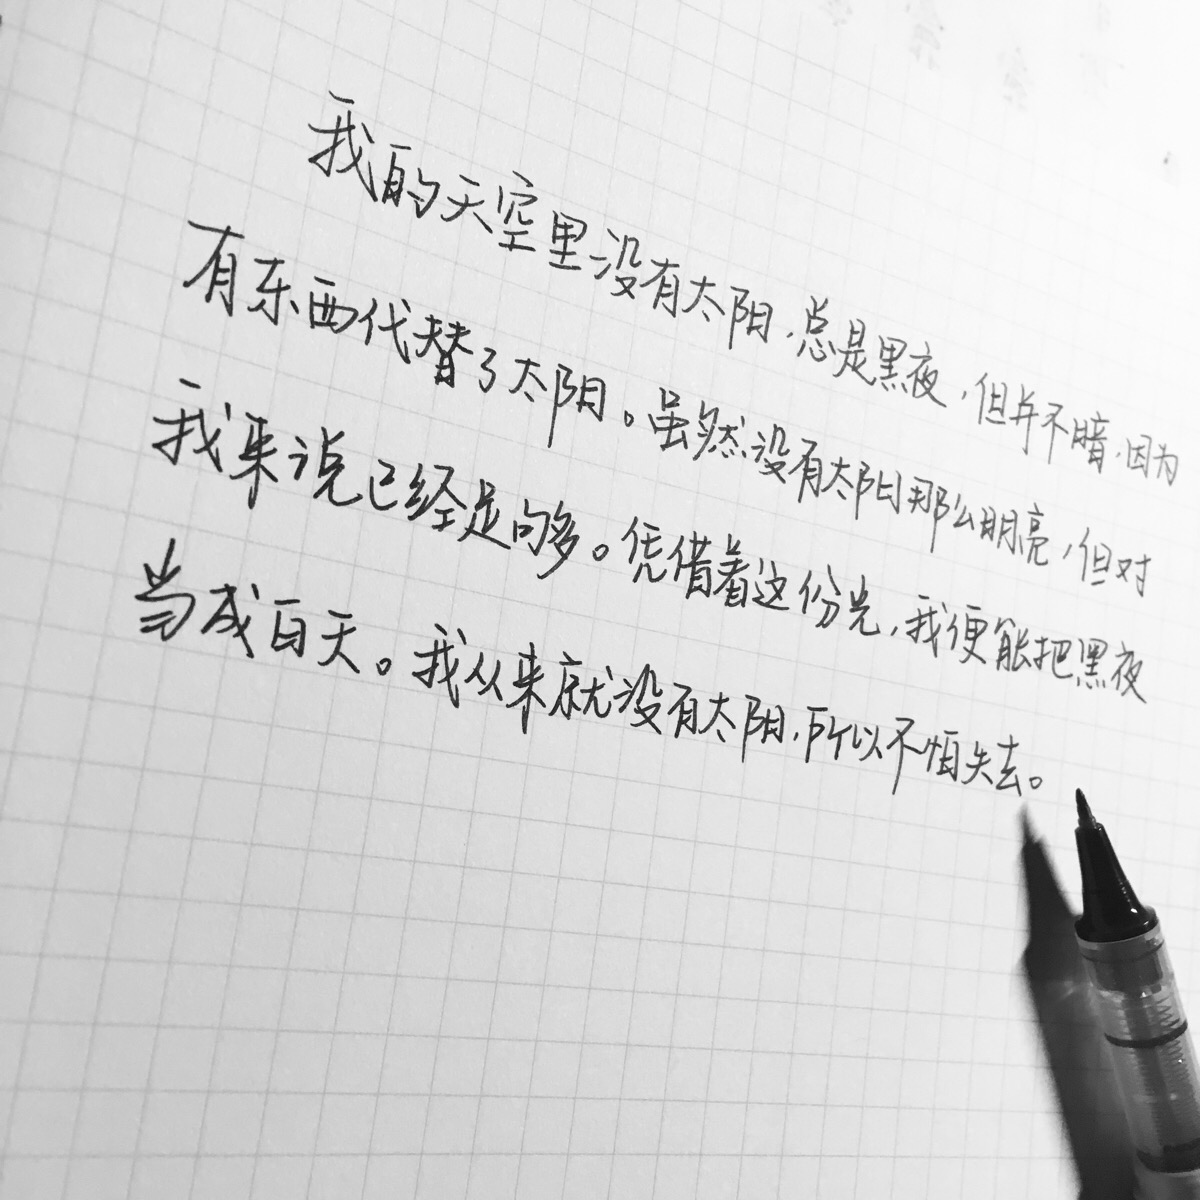 我的天空里没有太阳，总是黑夜，但并不暗，因为
有东西代替了太阳。虽然没有太阳那么明亮，但对
我来说已经足够。凭借着这份光，我便能把黑夜
当成白天。我从来就没有太阳，所以不怕失去。